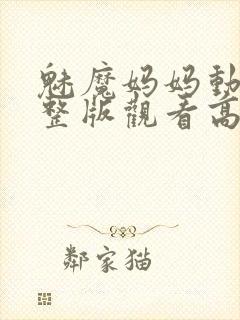 魅魔妈妈動
整版觀看高
鄰家猫